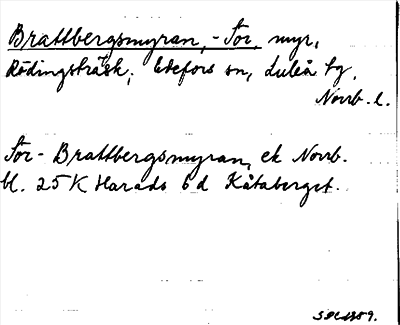 Brattbergsmyran, -Stor, myr,
Rödingsträsk, Edefors sn, Luleå tg,
Norrb. l.
Stor-Brattbergsmyran, ek Norrb.
bl. 25 K Harads 6 d Kåtaberget.